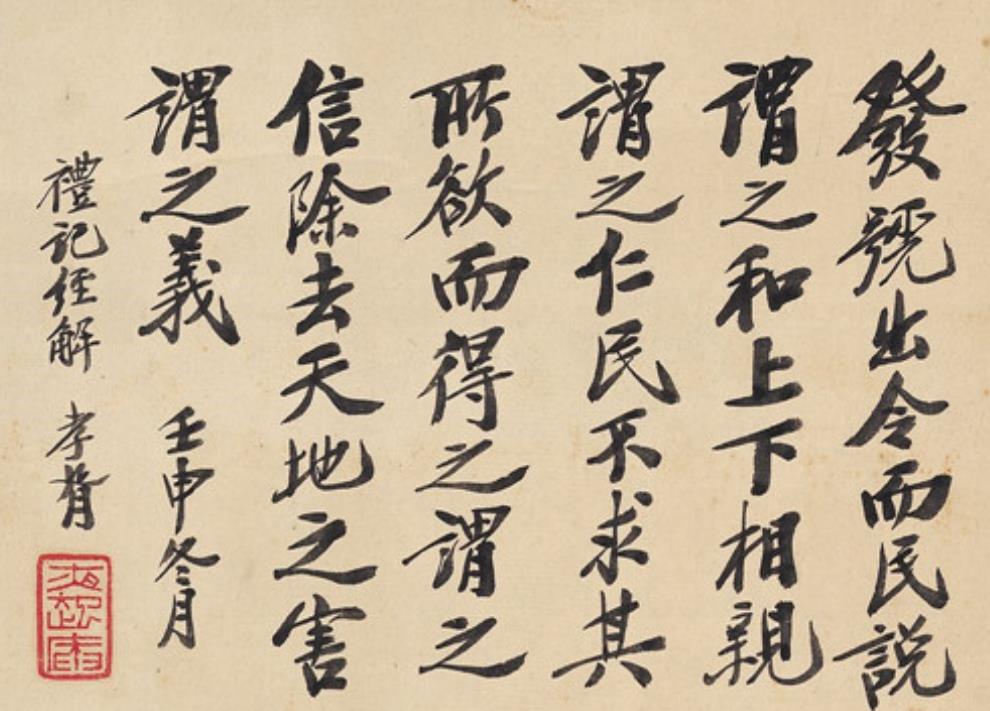 發號出令而民説
謂之和上下相親
謂之仁民不求其
所欲而得之謂之
信除去天地之害
謂之義 壬申冬月
禮記經解 孝胥